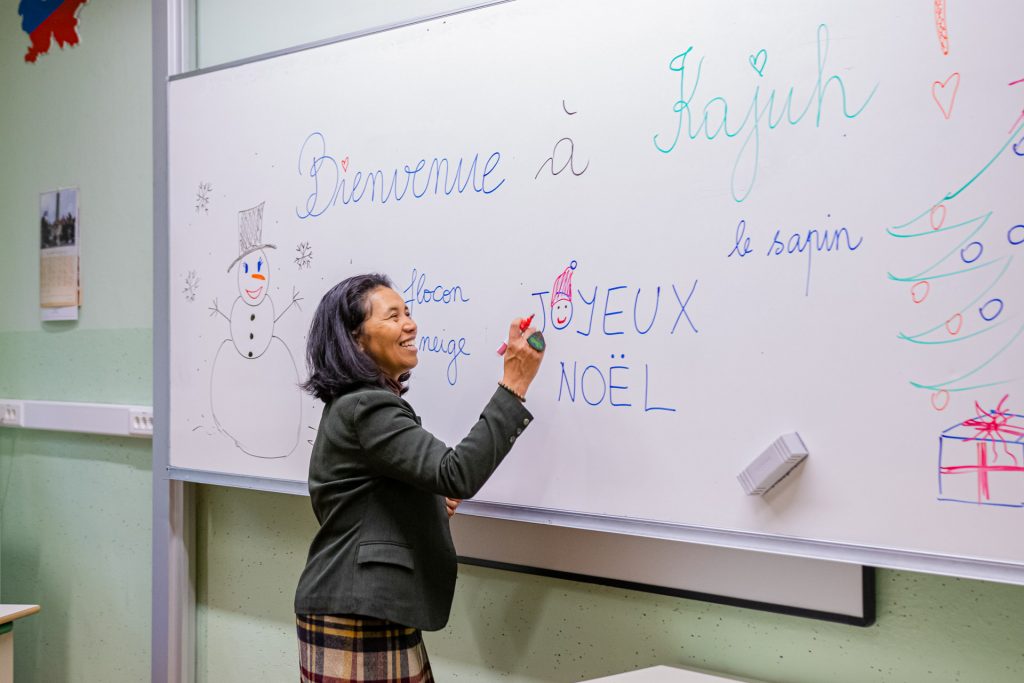 Bienvenue à Kajuh
le sapin
flocon
neige
JOYEUX
NOËL